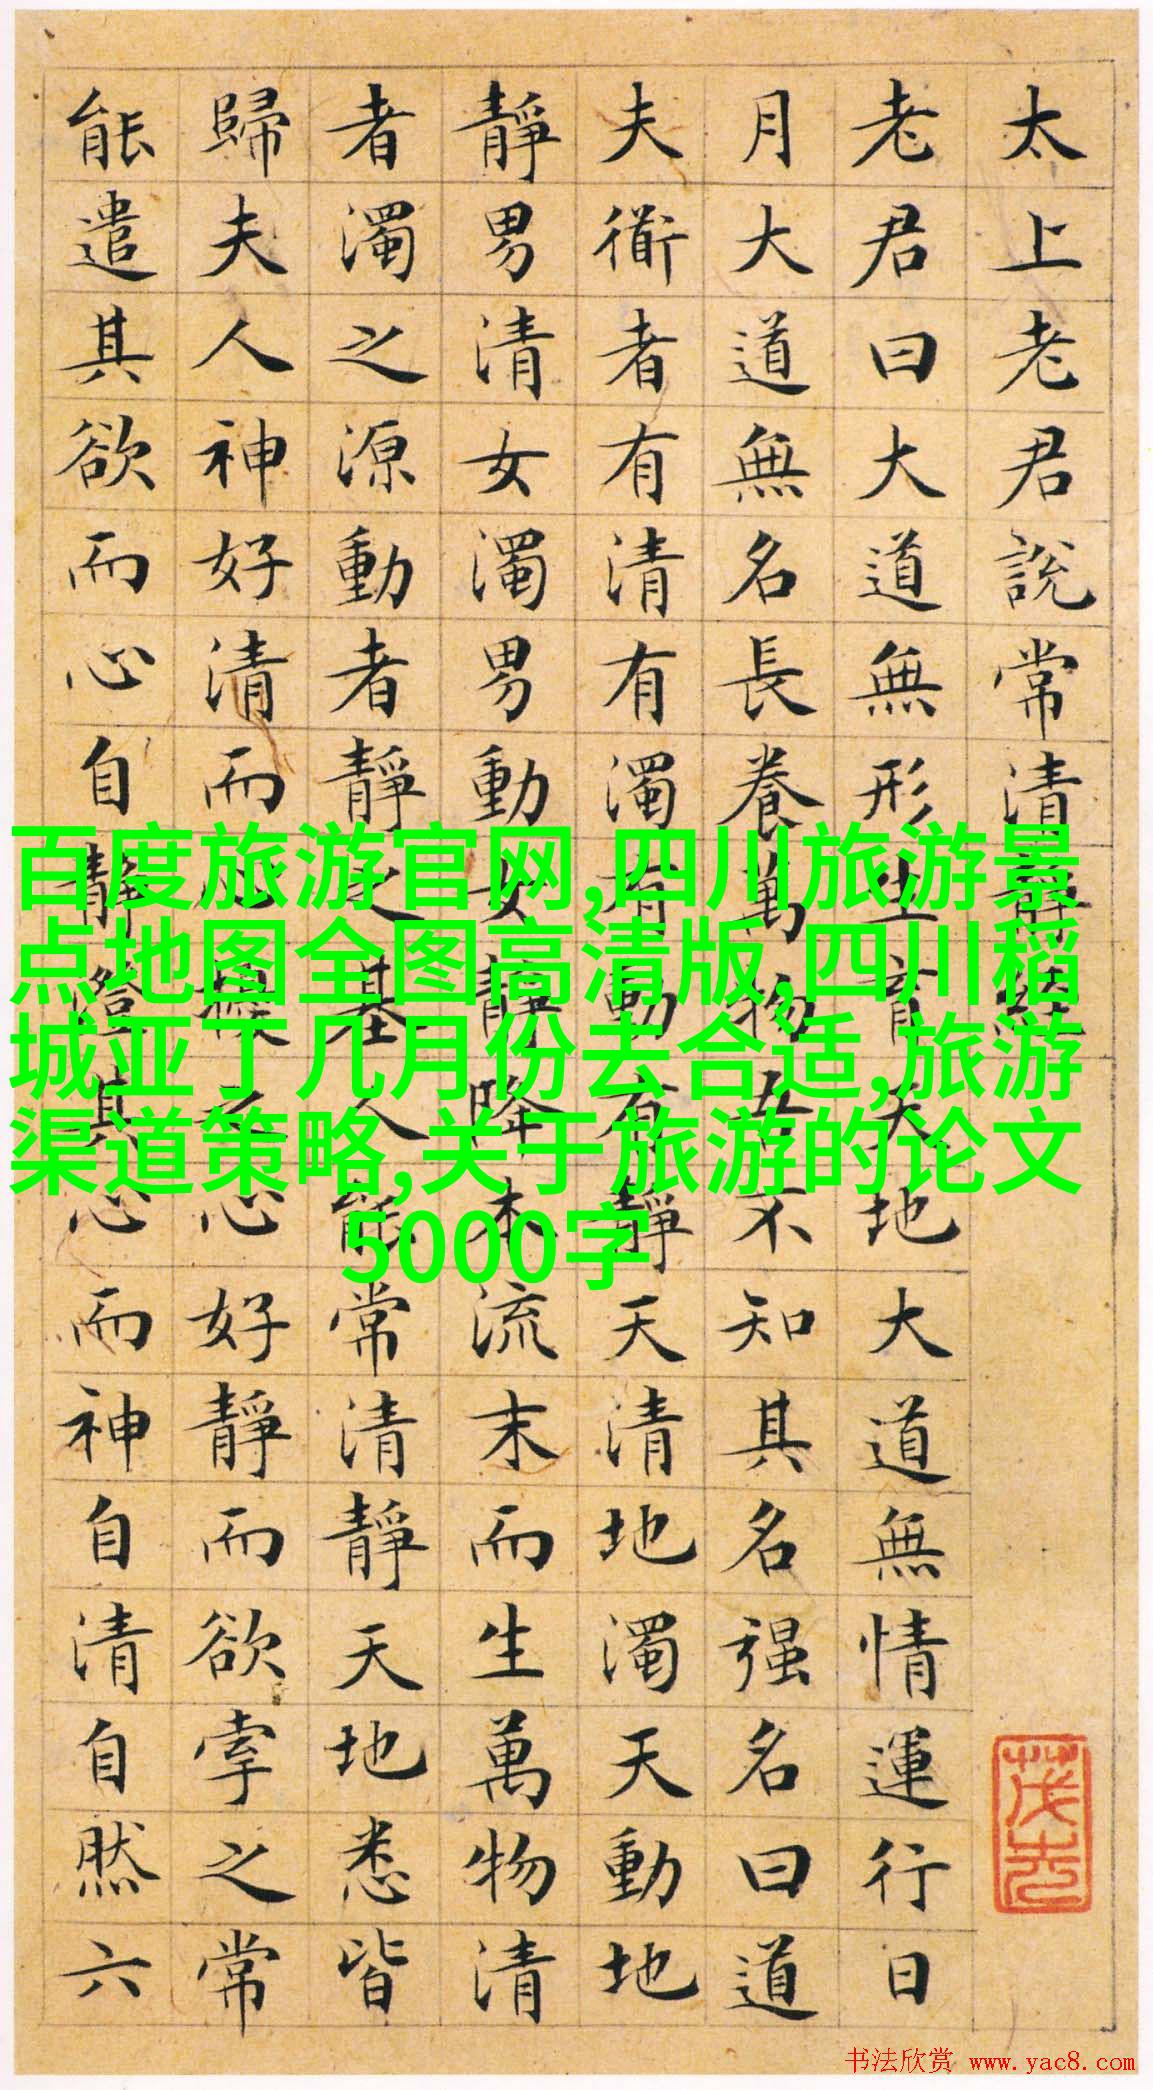 太上老君說常清靜經
老君曰大道無形生育天地大道無情運行日
月大道無名長養萬物吾不知其名强名曰道
夫衜者有清有濁有動有靜天清地濁天動地
靜男清女濁男動女靜降本流末而生萬物清
者濁之源動者靜之基人能常清靜天地悉皆
歸夫人神好清而心擾之心好靜而欲牽之常
能遣其欲而心自靜澄其心而神自清自然六
百度旅游官网,四川旅游景
点地图全图高清版,四川稻
城亚丁几月份去合适,旅游
渠道策略,关于旅游的论文
5000字
书法欣赏 www.yac8.com